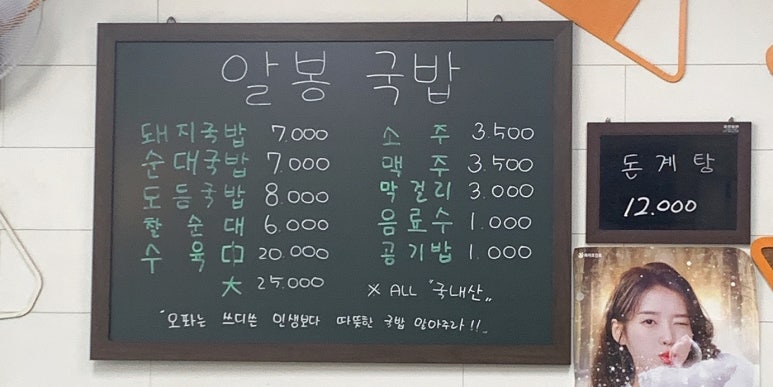 알봉 국밥
돼지국밥 7.000
순대국밥 7.000
모듬국밥 8.000
찰순대 6.000
수육 中 20.000
大 25.000
소주 3.500
맥주 3.500
막걸리 3.000
음료수 1.000
공기밥 1.000
※ ALL "국내산"
"오파는 쓰디쓴 인생보다 따뜻한 국밥 말아주라!!"
돈계탕
12.000